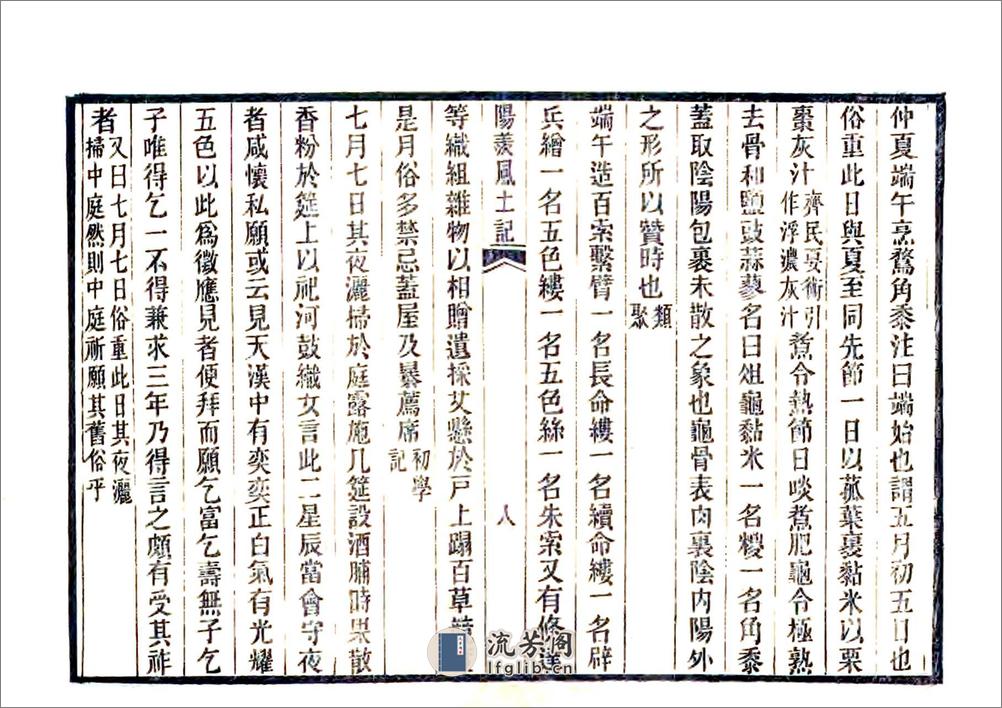 仲夏端午烹鶩角黍注曰端始也謂五月初五日也
俗重此日與夏至同先節一日以菰葉裹黏米以栗
棗灰汁齊民要術引作浮濃灰汁煮令熟節日啖煮肥龜令極熟
去骨和鹽豉蒜蓼名曰俎龜黏米一名糉一名角黍
蓋取陰陽包裹未散之象也龜骨表肉裏陰內陽外
之形所以贊時也類聚
端午造百索繫臂一名長命縷一名續命縷一名辟
兵繒一名五色縷一名五色絲一名朱索又有條達
陽羨風土記 八
等織組雜物以相贈遺採艾懸於戶上蹋百草
是月俗多禁忌蓋屋及暴薦席初學記
七月七日其夜灑掃於庭露施几筵設酒脯時果散
香粉於筵上以祀河鼓織女言此二星辰當會守夜
者咸懷私願或云見天漢中有奕奕正白氣有光耀
五色以此爲徵應見者便拜而願乞富乞壽無子乞
子唯得乞一不得兼求三年乃得言之頗有受其祚
者又曰七月七日俗重此日其夜灑掃中庭然則中庭祈願其舊俗乎
流芳阁
lfglib.cn